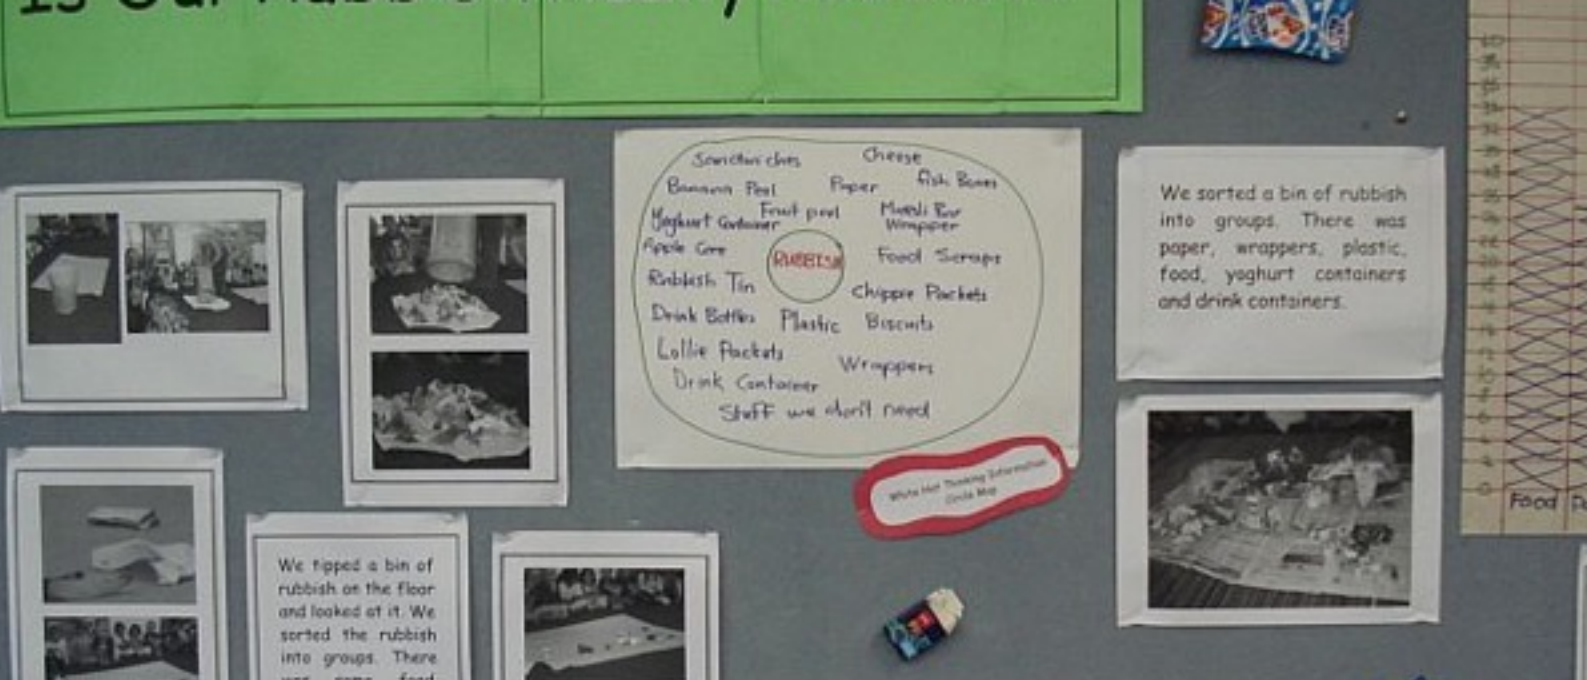 Is Our
Sandwiches Cheese
Banana Peel Paper Fish Bones
Yoghurt Container Fruit peel Muesli Bar
Wrapper
Apple Core RUBBISH Food Scraps
Rubbish Tin Chippie Packets
Drink Bottles Plastic Biscuits
Lollie Packets Wrappers
Drink Container
Stuff we don't need
White Hat Thinking Information
Circle Map
We sorted a bin of rubbish
into groups. There was
paper, wrappers, plastic,
food, yoghurt containers
and drink containers.
We tipped a bin of
rubbish on the floor
and looked at it. We
sorted the rubbish
into groups. There
was some food
0
Food